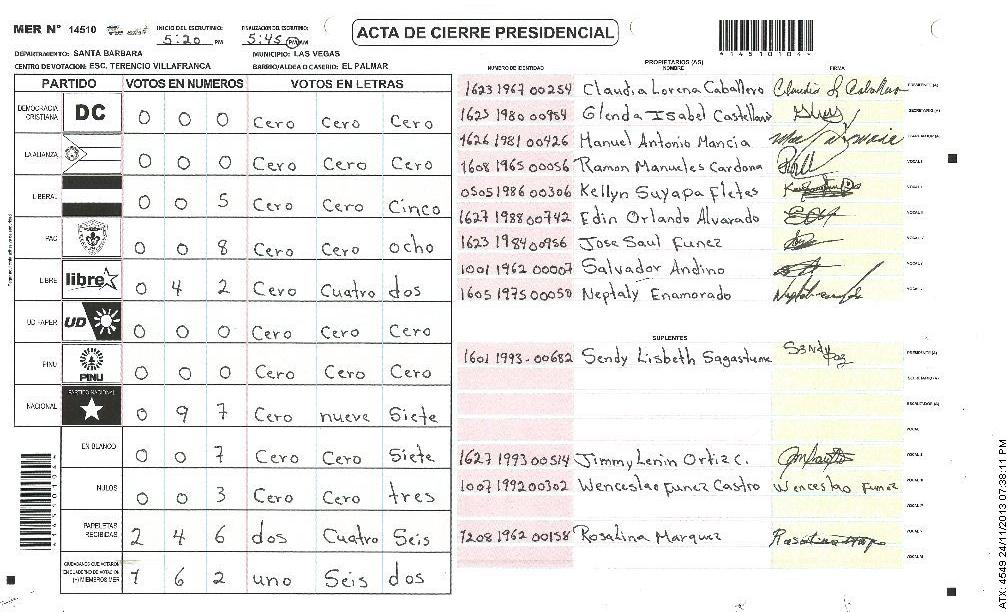 MER N° 14510 INICIO DEL ESCRUTINIO: 5:20 PM FINALIZACION DEL ESCRUTINIO: 5:45 PM
ACTA DE CIERRE PRESIDENCIAL
41451010 4
DEPARTAMENTO: SANTA BARBARA MUNICIPIO: LAS VEGAS
CENTRO DE VOTACION: ESC. TERENCIO VILLAFRANCA BARRIO/ALDEA O CASERIO: EL PALMAR
PARTIDO VOTOS EN NUMEROS VOTOS EN LETRAS
DEMOCRACIA CRISTIANA DC 0 0 0 Cero Cero Cero
LA ALIANZA 0 0 0 Cero Cero Cero
LIBERAL 0 0 5 Cero Cero Cinco
PAC 0 0 8 Cero Cero ocho
LIBRE libre 0 4 2 Cero Cuatro dos
UD FAPER UD 0 0 0 Cero Cero Cero
PINU PINU 0 0 0 Cero Cero Cero
NACIONAL PARTIDO NACIONAL 0 9 7 Cero nueve Siete
EN BLANCO 0 0 7 Cero Cero Siete
NULOS 0 0 3 Cero Cero tres
PAPELETAS RECIBIDAS 2 4 6 dos Cuatro Seis
CIUDADANOS QUE VOTARON EN CUADERNO DE VOTACION (+) MIEMBROS MER 1 6 2 uno Seis dos
PROPIETARIOS (AS)
NUMERO DE IDENTIDAD NOMBRE FIRMA
1623 1967 00254 Claudia Lorena Caballero Claudia L Caballero PRESIDENTE (A)
1625 1980 00954 Glenda Isabel Castellano SECRETARIO (A)
1626 1981 00426 Manuel Antonio Mancia ESCRUTADOR (A)
1608 1965 00056 Ramon Manueles Cardona VOCAL I
0505 1986 00306 Kellyn Suyapa Fletes
1627 1988 00742 Edin Orlando Alvarado
1623 1984 00956 Jose Saul Funez
1001 1962 00007 Salvador Andino
1605 1975 00050 Neptaly Enamorado
SUPLENTES
1601 1993-00682 Sendy Lisbeth Sagastume Sendy Paz PRESIDENTE (A)
SECRETARIO (A)
ESCRUTADOR (A)
VOCAL
1627 1993 00514 Jimmy Lenin Ortiz C.
1007 1992 00302 Wenceslao Funez Castro Wenceslao Funez
7208 1962 00158 Rosalina Marquez
ATX: 4549 24/11/2013 07:38:11 PM